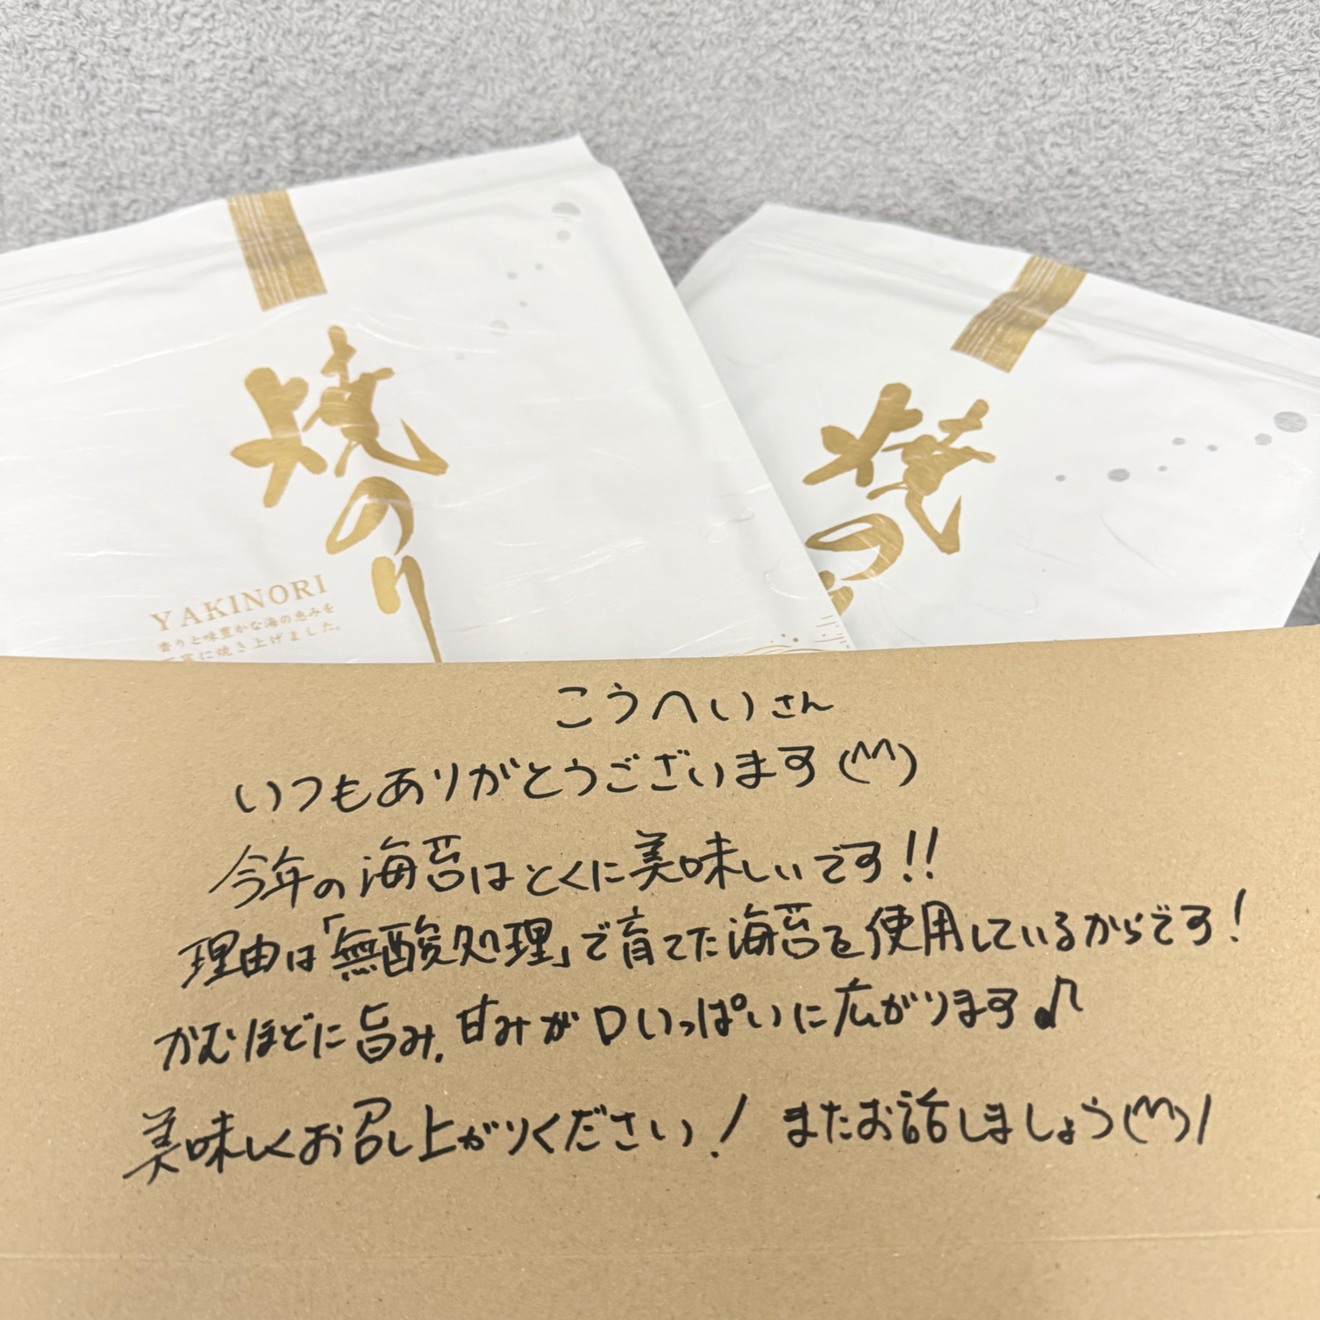 焼のり
YAKINORI
香りと味豊かな海の恵みを
に焼き上げました。
焼の
こうへいさん
いつもありがとうございます(^^)
今年の海苔はとくに美味しいです!!
理由は「無酸処理」で育てた海苔を使用しているからです!
かむほどに旨み、甘みが口いっぱいに広がります♪
美味しくお召し上がりください! またお話しましょう(^^)/